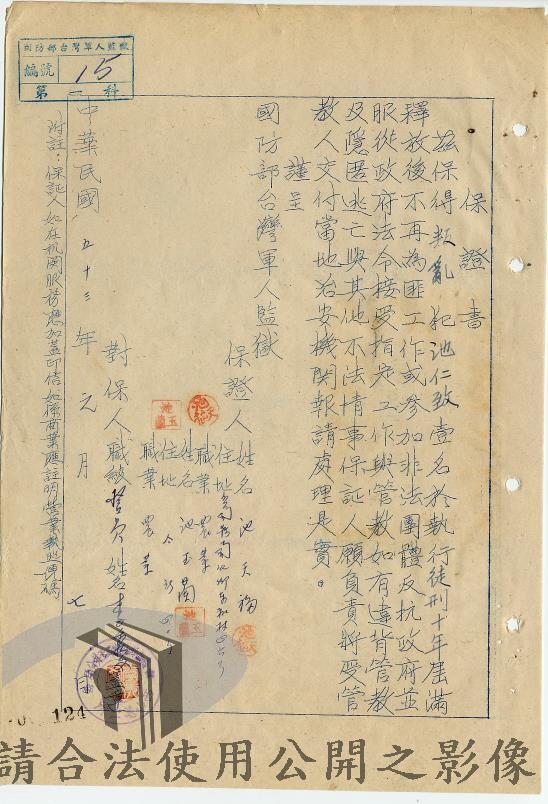 國防部台灣軍人監獄
編號 15
第一科
保證書
茲保得叛亂犯池仁致壹名於執行徒刑十年屆滿
釋放後不再為匪工作或參加非法團體反抗政府並
服從政府法令接受指定工作與管教如有違背管教
及隱匿逃亡與其他不法情事保証人願負責將受管
教人交付當地治安機關報請處理是實。
謹呈
國防部台灣軍人監獄
保證人
姓名 池天福
住址
職業 農業
姓名 池玉蘭
住地 仝
職業 農業
對保人職級 警員 姓名 李
中華民國 五十三 年 元 月 七
附註：保証人如在机関服務應加蓋印信如係商業應註明營業執照號碼
124
請合法使用公開之影像